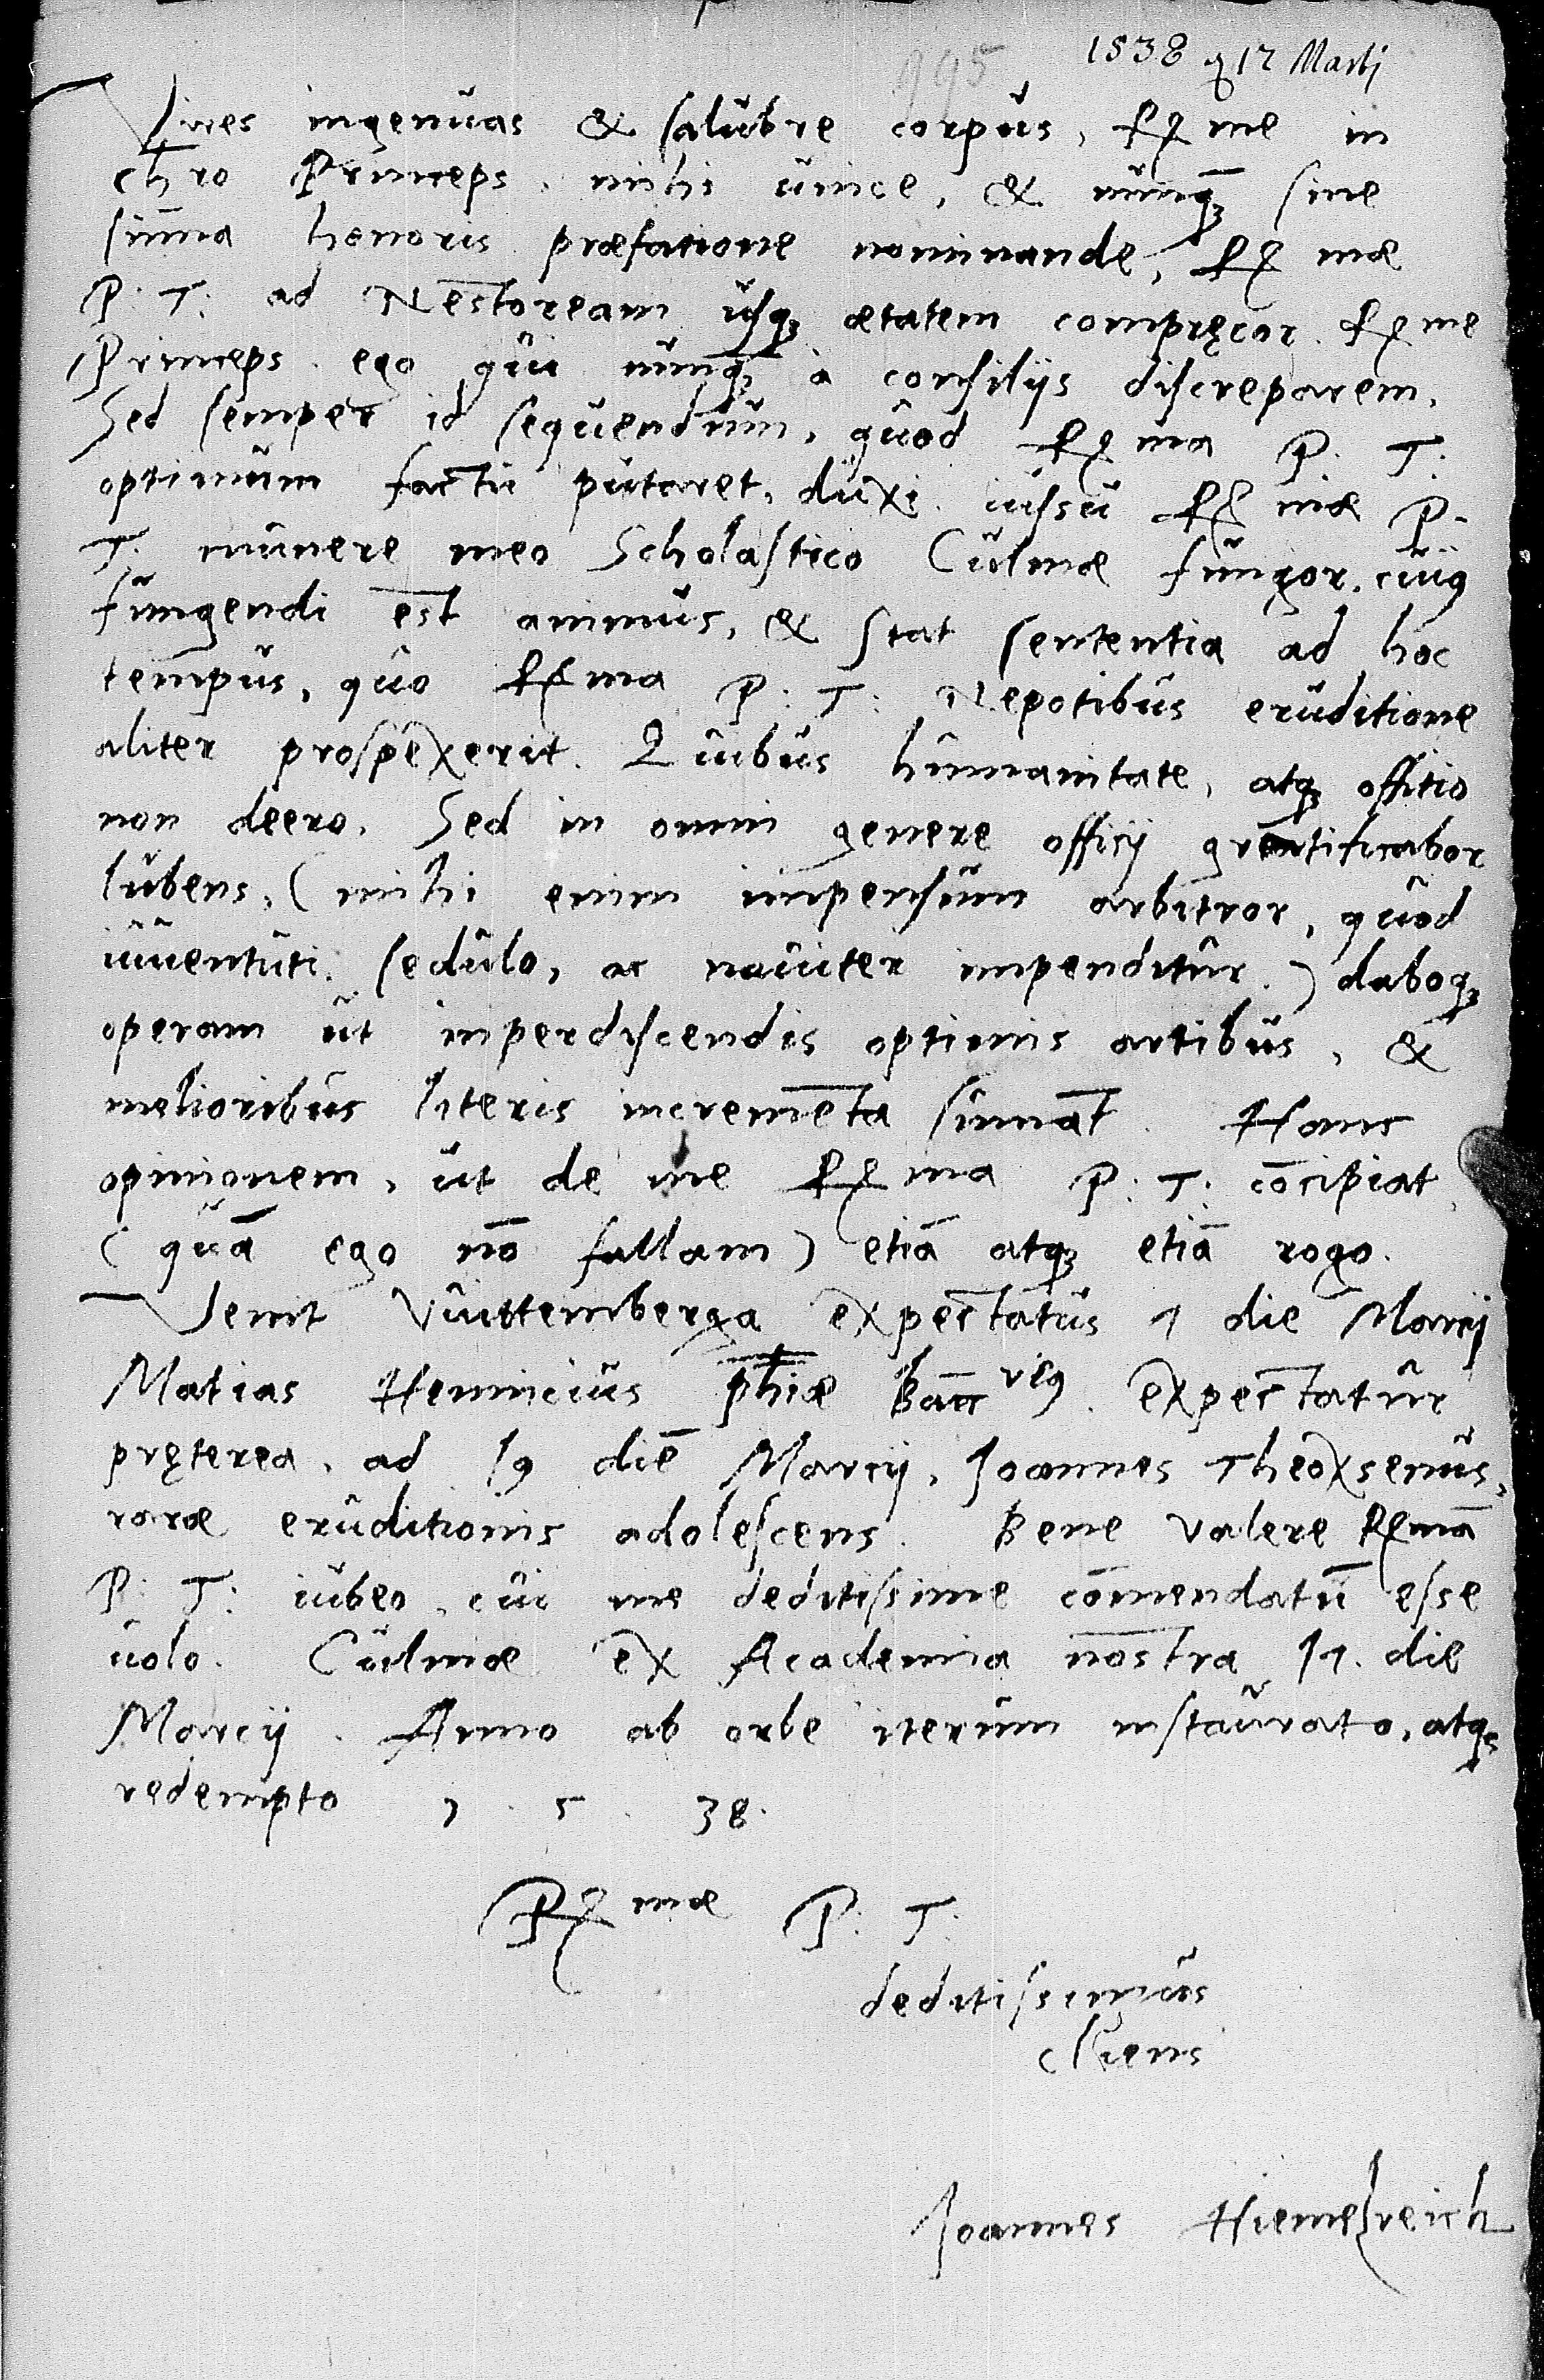 995 1538 17 Martij
Vires ingenuas & salubre corpus, Rx me in
chro Princeps, mihi unice, & nunq̄ʒ sine
sum̄a honoris praefatione nominande, Rx mae
P: T: ad Nestoream usqʒ aetatem compręcor. Rx me
Princeps. ego qui nunq̄ʒ à consilijs discreparem,
Sed semper id sequendum, quod Rx ma P: T:
optimum factū putaret, duxi. iussu Rx mae P.
T. munere meo Scholastico Culmae fungor, cuiꝰ
fungendi est animus, & stat sententia ad hoc
tempus, quo Rx ma P: T: Nepotibus eruditione
aliter prospexerit. Quibus humanitate, atqʒ offitio
non deero. Sed in omni genere officij gratificabor
lubens, (mihi enim impensum arbitror, quod
iuuentuti sedulo, ac nauiter impenditur.) daboqʒ
operam ut inperdiscendis optimis artibus, &
melioribus literis incremēta sumāt. Hanc
opinionem, ut de me Rx ma P: T: cōcipiat,
(quā ego nō fallam) etiā atqʒ etiā rogo.
Venit Vuittemberga expectatus 1 die Marcij
Matias Hennicius ph̄iae Bacc reꝰ. expectatur
pręterea, ad 19 diē Marcij, Joannes Theoxsenus,
rarae eruditionis adolescens. Bene valere Rx mā
P: T: iubeo, cui me deditissime com̄endatū esse
uolo. Culmae ex Academia nostra 17. die
Marcij. Anno ab orbe iterum instaurato, atqʒ
redempto 1 . 5 . 38.
Rx mae P: T:
deditissimus
cliens
Joannes Hiemelreich